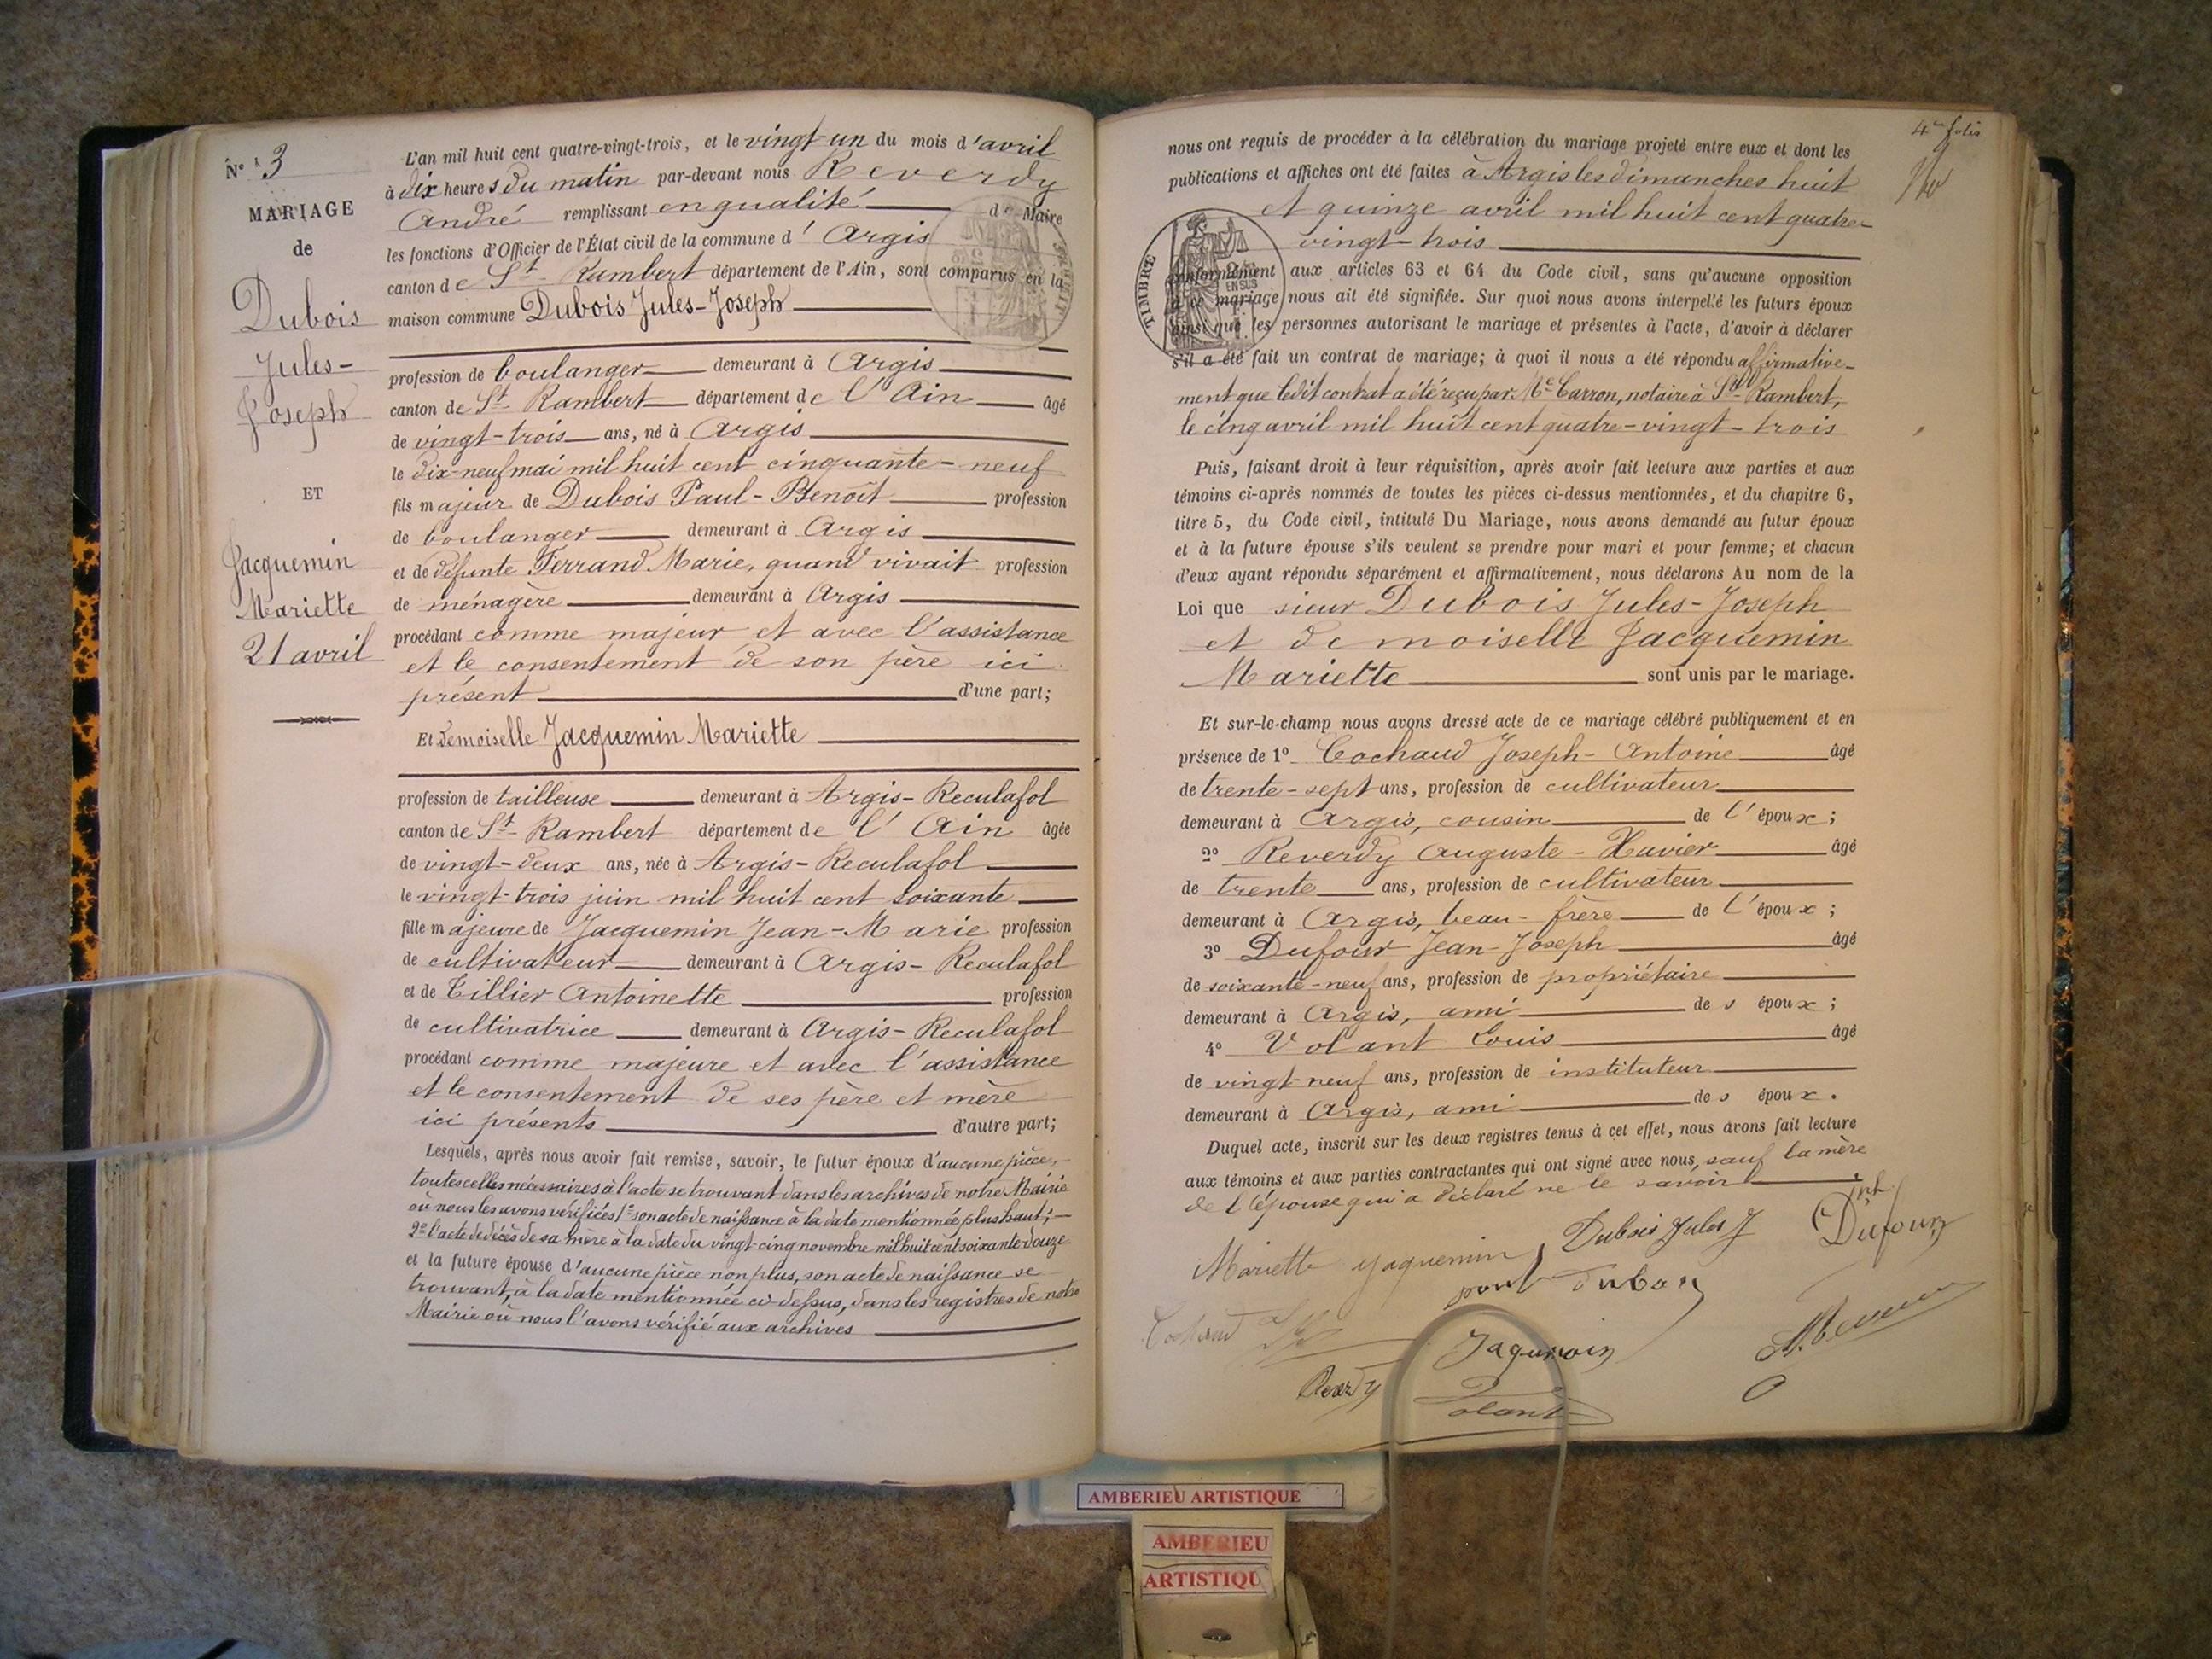 N° 3
MARIAGE
de
Dubois
Jules-
Joseph
ET
Jacquemin
Mariette
21 avril
L'an mil huit cent quatre-vingt-trois, et le vingt-un du mois d'avril
à dix heures du matin par-devant nous Reverdy
André remplissant en qualité de Maire
les fonctions d'Officier de l'État civil de la commune d'Argis
canton de St Rambert département de l'Ain, sont comparus en la
maison commune Dubois Jules-Joseph
profession de boulanger demeurant à Argis
canton de St Rambert département de l'Ain âgé
de vingt-trois ans, né à Argis
le dix-neuf mai mil huit cent cinquante-neuf
fils majeur de Dubois Paul-Benoît profession
de boulanger demeurant à Argis
et de défunte Ferrand Marie, quand vivait profession
de ménagère demeurant à Argis
procédant comme majeur et avec l'assistance
et le consentement de son père ici
présent d'une part;
Et demoiselle Jacquemin Mariette
profession de tailleuse demeurant à Argis-Reculafol
canton de St Rambert département de l'Ain âgée
de vingt-deux ans, née à Argis-Reculafol
le vingt-trois juin mil huit cent soixante
fille majeure de Jacquemin Jean-Marie profession
de cultivateur demeurant à Argis-Reculafol
et de Tillier Antoinette profession
de cultivatrice demeurant à Argis-Reculafol
procédant comme majeure et avec l'assistance
et le consentement de ses père et mère
ici présents d'autre part;
Lesquels, après nous avoir fait remise, savoir, le futur époux d'aucune pièce,
toutes celles nécessaires à l'acte se trouvant dans les archives de notre Mairie
où nous les avons vérifiées 1° son acte de naissance à la date mentionnée plus haut;
2° l'acte de décès de sa mère à la date du vingt-cinq novembre mil huit cent soixante-douze
et la future épouse d'aucune pièce non plus, son acte de naissance se
trouvant, à la date mentionnée ci-dessus, dans les registres de notre
Mairie où nous l'avons vérifié aux archives
4me folio
nous ont requis de procéder à la célébration du mariage projeté entre eux et dont les
publications et affiches ont été faites à Argis les dimanches huit
et quinze avril mil huit cent quatre-
vingt-trois
TIMBRE
conformément aux articles 63 et 64 du Code civil, sans qu'aucune opposition
à ce mariage nous ait été signifiée. Sur quoi nous avons interpellé les futurs époux
ainsi que les personnes autorisant le mariage et présentes à l'acte, d'avoir à déclarer
s'il a été fait un contrat de mariage; à quoi il nous a été répondu affirmative-
ment que ledit contrat a été reçu par Me Carron, notaire à St Rambert,
le cinq avril mil huit cent quatre-vingt-trois
Puis, faisant droit à leur réquisition, après avoir fait lecture aux parties et aux
témoins ci-après nommés de toutes les pièces ci-dessus mentionnées, et du chapitre 6,
titre 5, du Code civil, intitulé Du Mariage, nous avons demandé au futur époux
et à la future épouse s'ils veulent se prendre pour mari et pour femme; et chacun
d'eux ayant répondu séparément et affirmativement, nous déclarons Au nom de la
Loi que sieur Dubois Jules-Joseph
et demoiselle Jacquemin
Mariette sont unis par le mariage.
Et sur-le-champ nous avons dressé acte de ce mariage célébré publiquement et en
présence de 1° Cochaud Joseph-Antoine âgé
de trente-sept ans, profession de cultivateur
demeurant à Argis, cousin de l'époux;
2° Reverdy Auguste-Xavier âgé
de trente ans, profession de cultivateur
demeurant à Argis, beau-frère de l'époux;
3° Dufour Jean-Joseph âgé
de soixante-neuf ans, profession de propriétaire
demeurant à Argis, ami des époux;
4° Volant Louis âgé
de vingt-neuf ans, profession de instituteur
demeurant à Argis, ami des époux.
Duquel acte, inscrit sur les deux registres tenus à cet effet, nous avons fait lecture
aux témoins et aux parties contractantes qui ont signé avec nous, sauf la mère
de l'épouse qui a déclaré ne le savoir
Mariette Jaquemin Dubois Jules J Dufour
Cochaud
Reverdy Volant
AMBERIEU ARTISTIQUE
AMBERIEU
ARTISTIQU